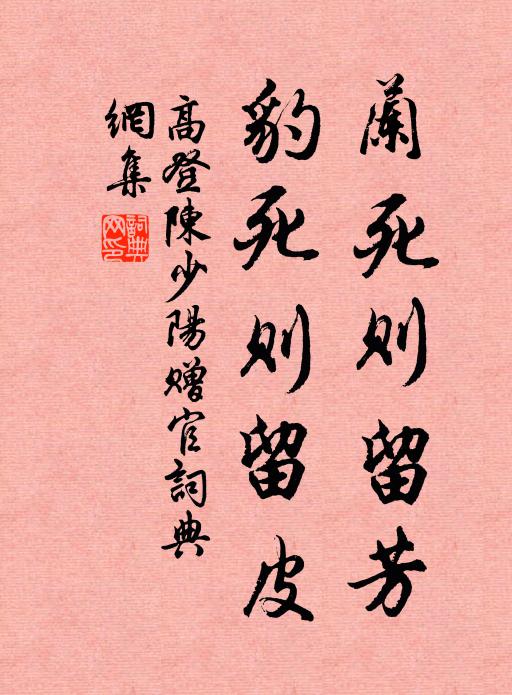 蘭死则留芳
豹死则留皮
高登陳少陽贈官詞典
網集
詞典網印